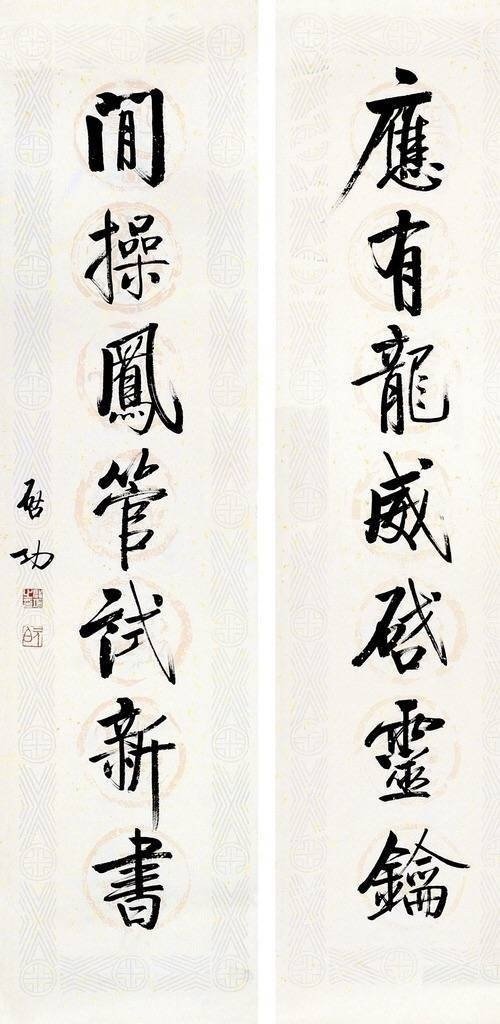 應有龍威啓靈鑰
閒操鳳管試新書
启功